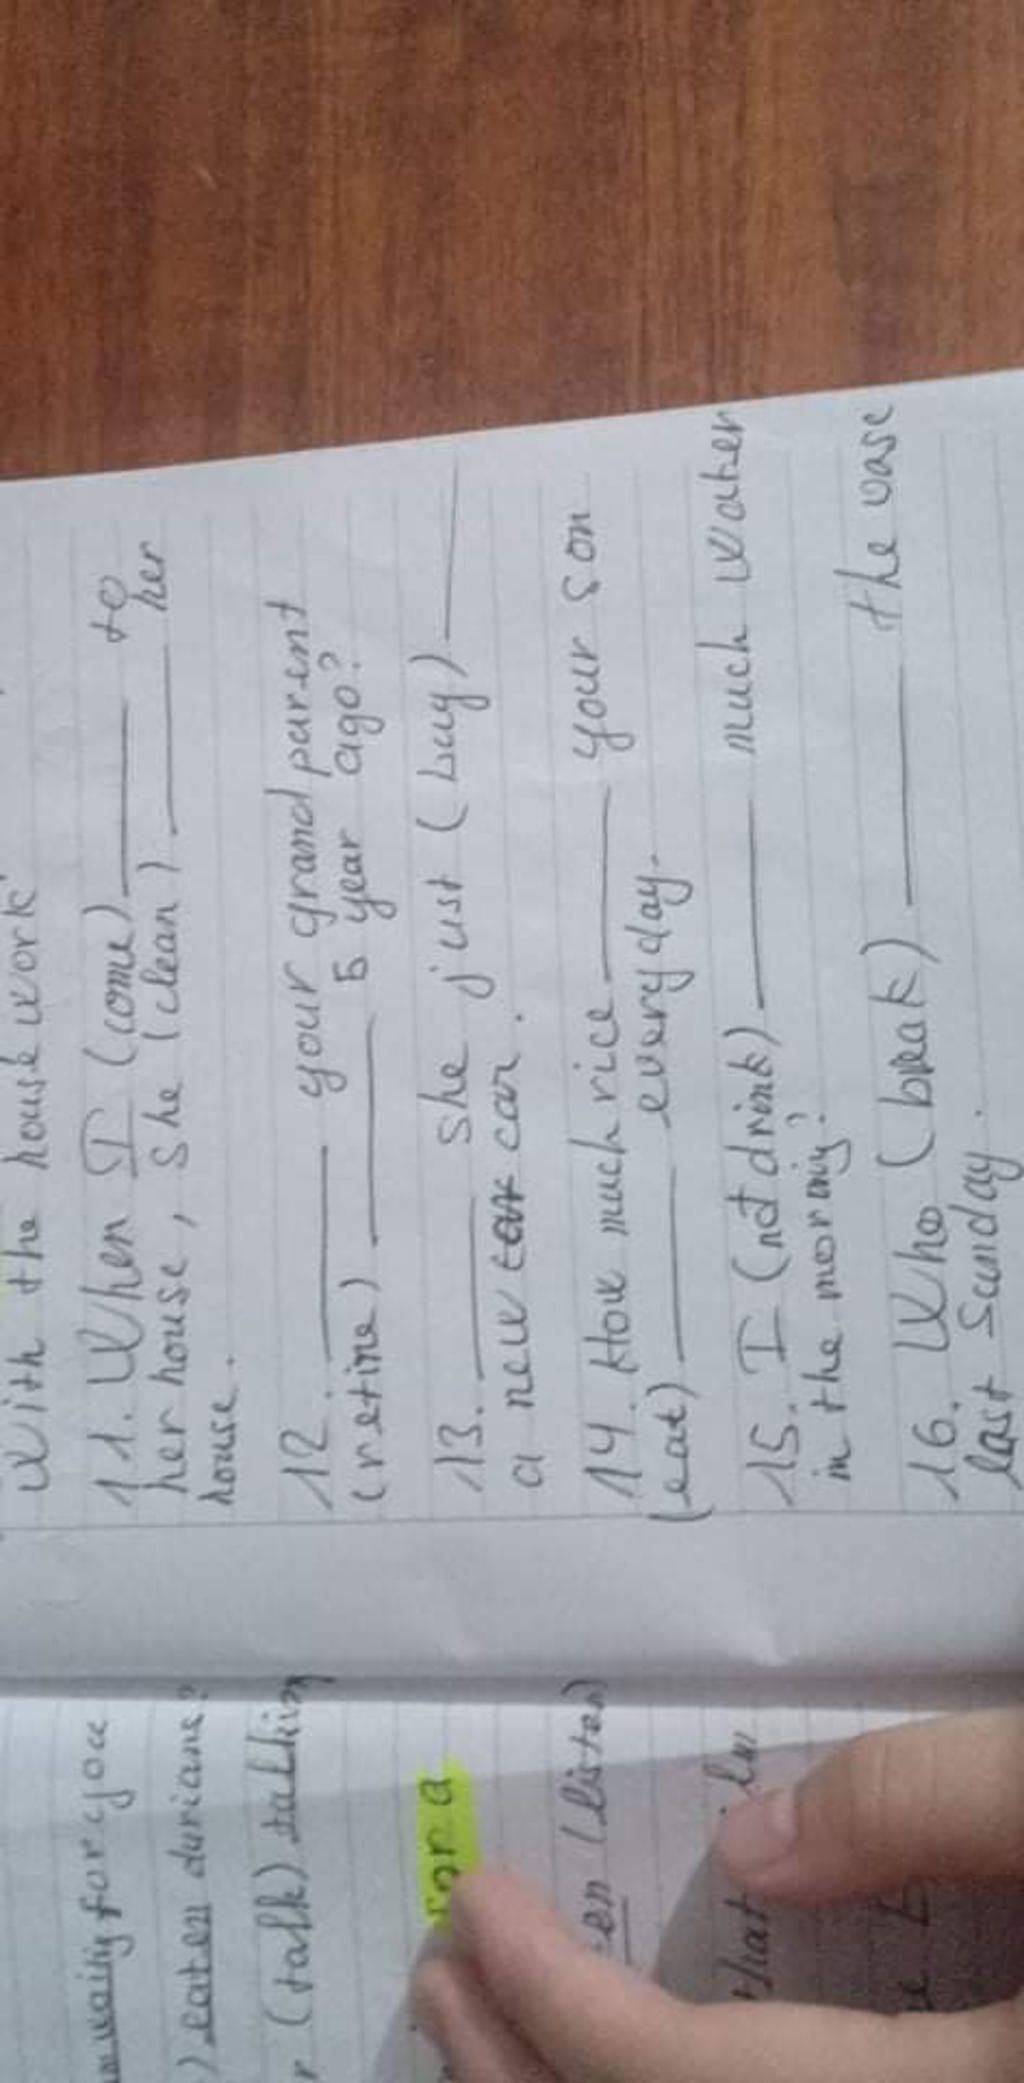 with the house work
11. When I (come) ______ to
her house, she (clean) ______ her
house.
12. ______ your grand parent
(retire) ______ 5 year ago?
13. ______ she just (buy) ______
a new car.
14. How much rice ______ your son
(eat) ______ everyday.
15. I (not drink) ______ much water
in the morning?
16. Who (break) ______ the vase
last Sunday.
for you
) eaten durians?
r (talk) talking
for a
en (listen)
that